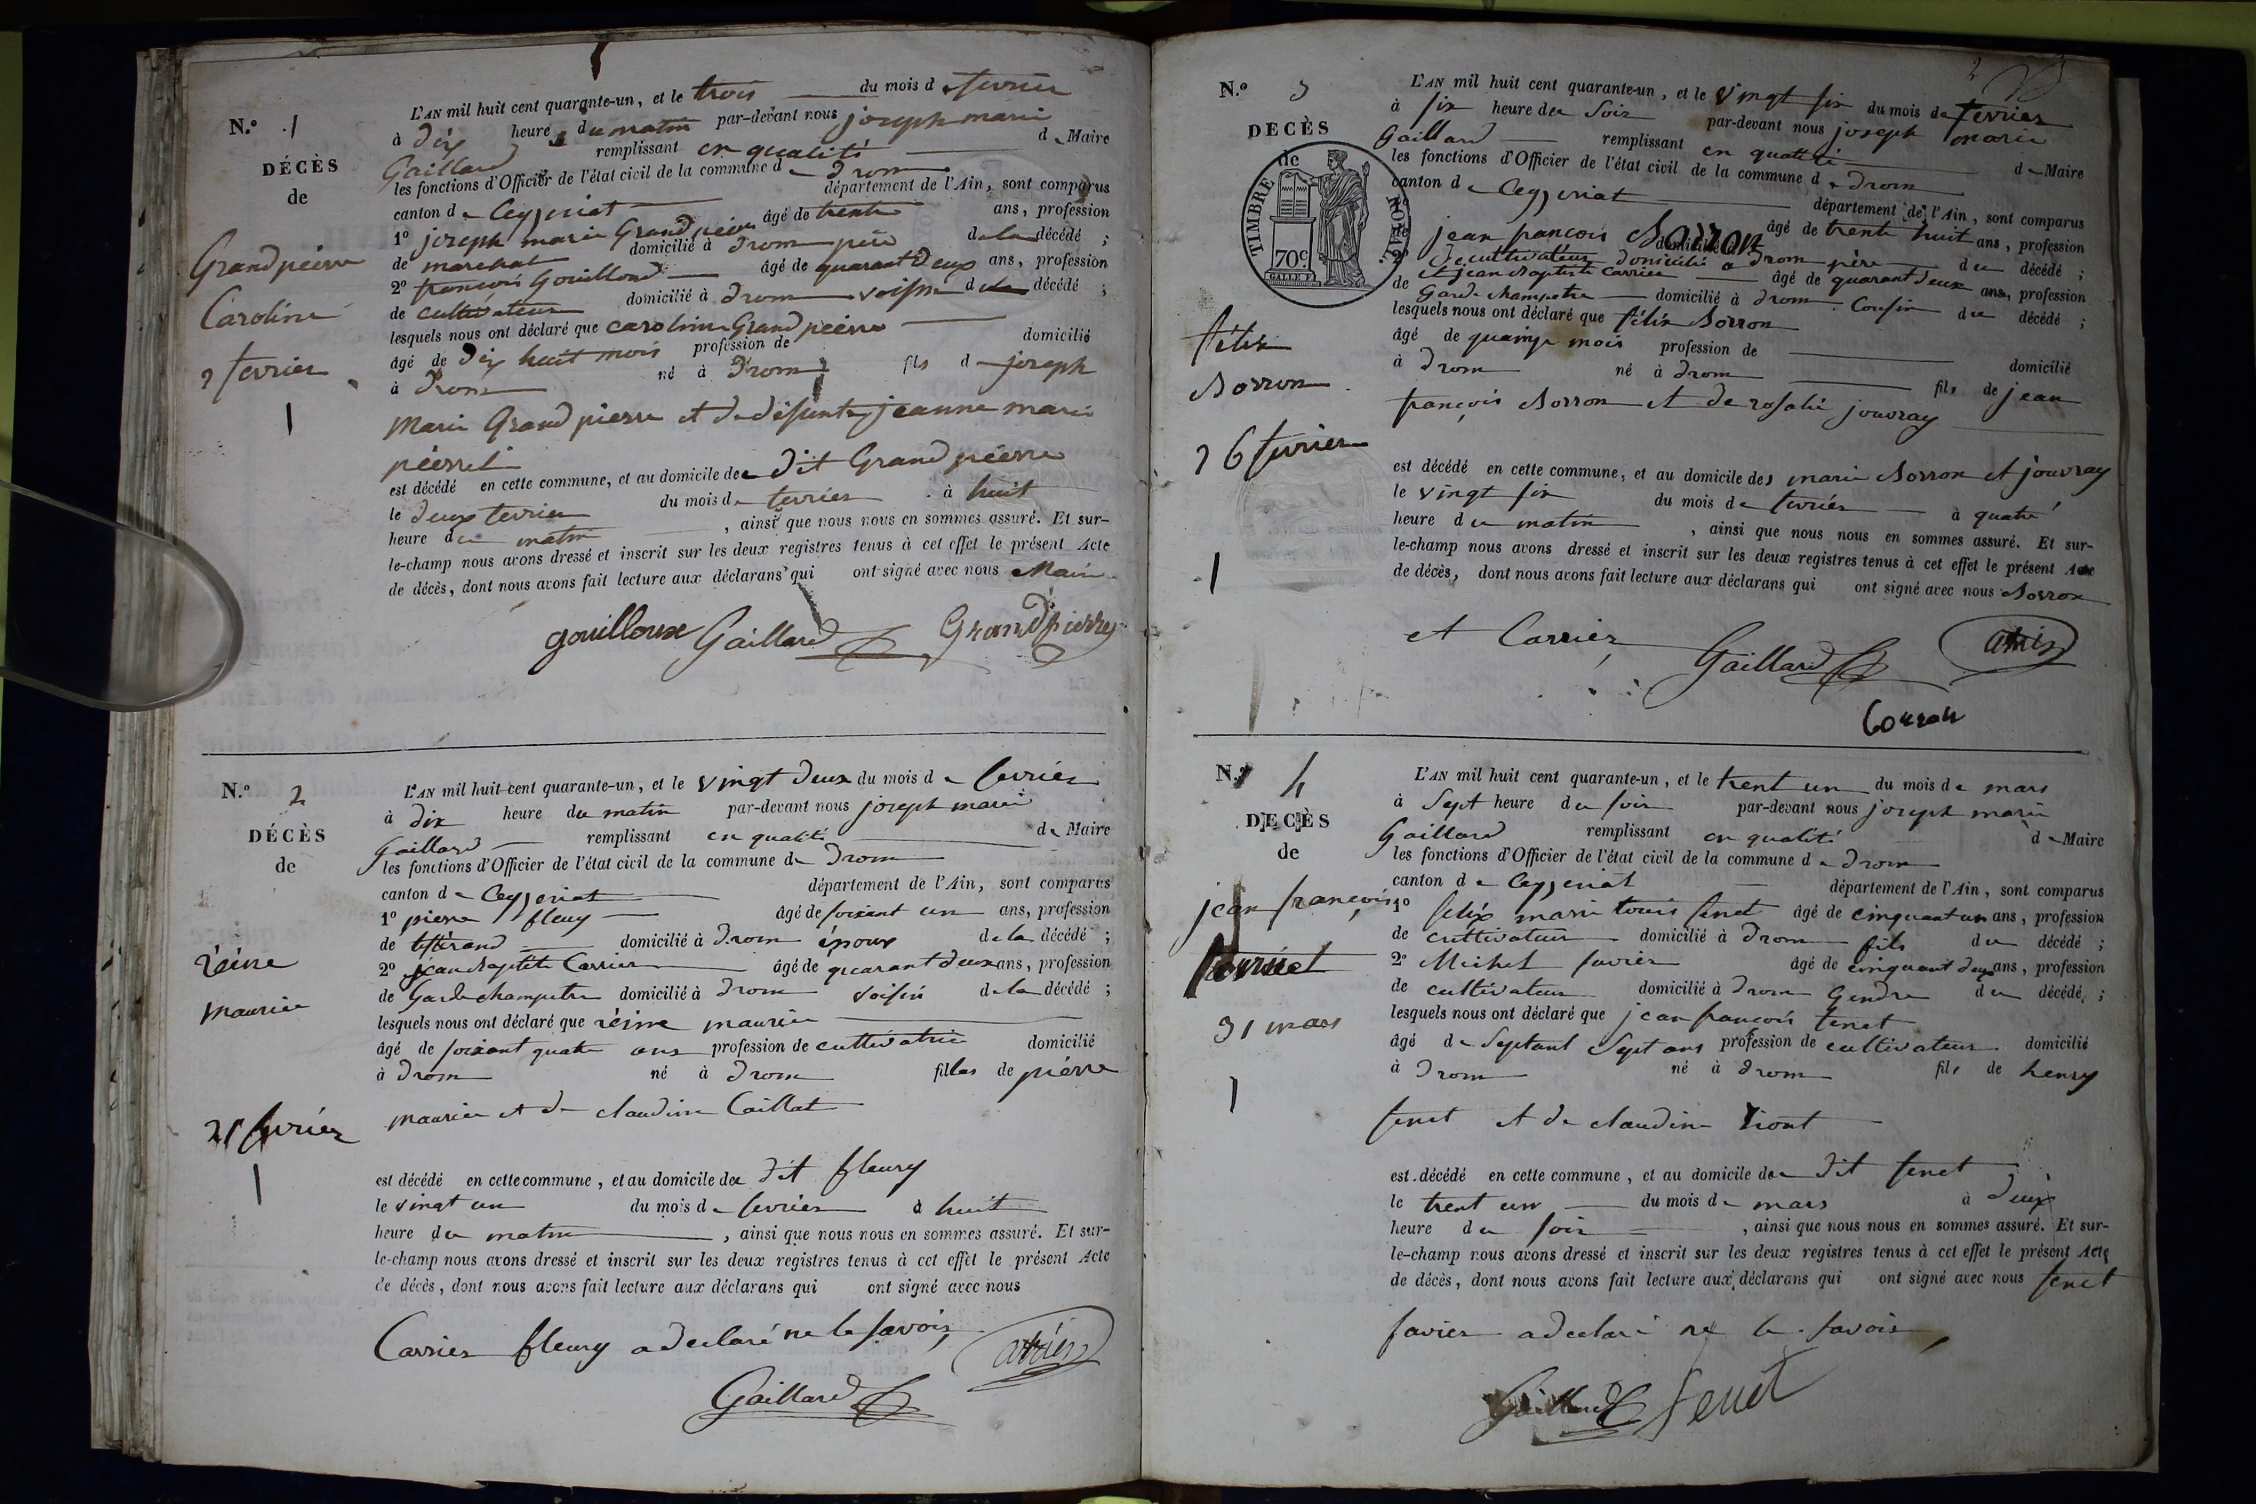 N.° 1
DÉCÈS
de
Grandpeirre
Caroline
2 fevrier
L'AN mil huit cent quarante-un, et le trois du mois de fevrier
à dix heure du matin par-devant nous joseph marie
Gaillard remplissant en qualité de Maire
les fonctions d'Officier de l'état civil de la commune de drom
canton de Ceyzeriat département de l'Ain, sont comparus
1° joseph marie Grandpeirre âgé de trente ans, profession
de marechal domicilié à drom père de la décédé ;
2° françois Gouilloud âgé de quarant deux ans, profession
de cultivateur domicilié à drom voisin de la décédé ;
lesquels nous ont déclaré que caroline Grandpeirre
âgé de dix huit mois profession de domicilié
à drom né à drom fils de joseph
Marie Grandpierre et de défunte jeanne marie
péerreli
est décédé en cette commune, et au domicile de dit Grandpéerre
le deux fevrier du mois de fevrier à huit
heure du matin, ainsi que nous nous en sommes assuré. Et sur-
le-champ nous avons dressé et inscrit sur les deux registres tenus à cet effet le présent Acte
de décès, dont nous avons fait lecture aux déclarans qui ont signé avec nous Maire
gouilloux Gaillard Grandpierre
N.° 2
DÉCÈS
de
réine
maurier
21 fevrier
L'AN mil huit cent quarante-un, et le vingt deux du mois de fevrier
à dix heure du matin par-devant nous joseph marie
Gaillard remplissant en qualité de Maire
les fonctions d'Officier de l'état civil de la commune de drom
canton de Ceyzeriat département de l'Ain, sont comparus
1° pierre fleury âgé de soixant un ans, profession
de tisserand domicilié à drom époux de la décédé ;
2° jean Baptiste Carrier âgé de quarant deux ans, profession
de Garde champetre domicilié à drom voisin de la décédé ;
lesquels nous ont déclaré que réine maurier
âgé de soixant quatre ans profession de cultivatrice domicilié
à drom né à drom filles de pierre
maurier et de claudine Caillat
est décédé en cette commune, et au domicile de dit fleury
le vingt un du mois de fevrier à huit
heure du matin, ainsi que nous nous en sommes assuré. Et sur-
le-champ nous avons dressé et inscrit sur les deux registres tenus à cet effet le présent Acte
de décès, dont nous avons fait lecture aux déclarans qui ont signé avec nous
Carrier fleury a declaré ne le savoir
Gaillard
N.° 3
DECÈS
de
TIMBRE ROYAL
70c
félix
Borron
26 fevrier
L'AN mil huit cent quarante-un, et le vingt six du mois de fevrier
à six heure du soir par-devant nous joseph marie
Gaillard remplissant en qualité de Maire
les fonctions d'Officier de l'état civil de la commune de drom
canton de Ceyzeriat département de l'Ain, sont comparus
jean françois Borron âgé de trente huit ans, profession
de cultivateur domicilié à drom père du décédé ;
et jean Baptiste Carrier âgé de quarant deux ans, profession
de Garde champetre domicilié à drom Cousin du décédé ;
lesquels nous ont déclaré que félix Borron
âgé de quainze mois profession de domicilié
à drom né à drom fils de jean
françois Borron et de rosalie jouvray
est décédé en cette commune, et au domicile des marie Borron et jouvray
le vingt six du mois de fevrier à quatre
heure du matin, ainsi que nous nous en sommes assuré. Et sur-
le-champ nous avons dressé et inscrit sur les deux registres tenus à cet effet le présent Acte
de décès, dont nous avons fait lecture aux déclarans qui ont signé avec nous Borron
et Carrier
Gaillard
N.° 4
DECÈS
de
jean françois
31 mars
L'AN mil huit cent quarante-un, et le trent un du mois de mars
à sept heure du soir par-devant nous joseph marie
Gaillard remplissant en qualité de Maire
les fonctions d'Officier de l'état civil de la commune de drom
canton de Ceyzeriat département de l'Ain, sont comparus
1° félix marie louis fenet âgé de cinquant un ans, profession
de cultivateur domicilié à drom fils du décédé ;
2° Michel favier âgé de cinquant deux ans, profession
de cultivateur domicilié à drom Gendre du décédé ;
lesquels nous ont déclaré que jean françois fenet
âgé de septant sept ans profession de cultivateur domicilié
à drom né à drom fils de henry
fenet et de claudine
est décédé en cette commune, et au domicile de dit fenet
le trent un du mois de mars à deux
heure du soir, ainsi que nous nous en sommes assuré. Et sur-
le-champ nous avons dressé et inscrit sur les deux registres tenus à cet effet le présent Acte
de décès, dont nous avons fait lecture aux déclarans qui ont signé avec nous fenet
favier a declaré ne le savoir
Gaillard fenet